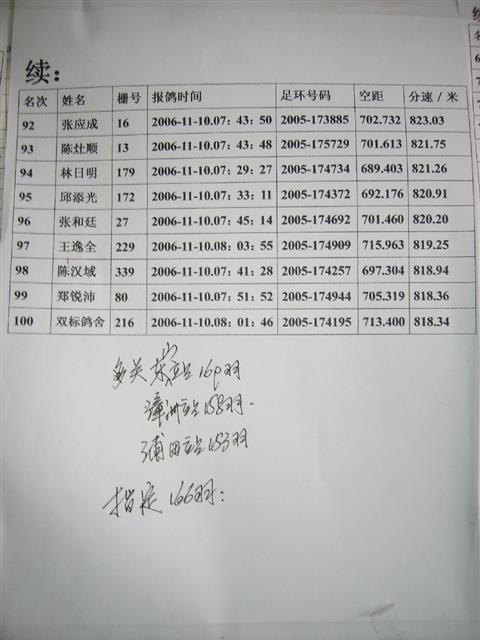 续:
名次 姓名 栅号 报鸽时间 足环号码 空距 分速/米
92 张应成 16 2006-11-10.07: 43: 50 2005-173885 702.732 823.03
93 陈灶顺 13 2006-11-10.07: 43: 48 2005-175729 701.613 821.75
94 林日明 179 2006-11-10.07: 29: 27 2005-174734 689.403 821.26
95 邱添光 172 2006-11-10.07: 33: 11 2005-174372 692.176 820.91
96 张和廷 27 2006-11-10.07: 45: 14 2005-174692 701.460 820.20
97 王逸全 229 2006-11-10.08: 03: 55 2005-174909 715.963 819.25
98 陈汉域 339 2006-11-10.07: 41: 28 2005-174257 697.304 818.94
99 郑锐沛 80 2006-11-10.07: 51: 52 2005-174944 705.319 818.36
100 双标鸽舍 216 2006-11-10.08: 01: 46 2005-174195 713.400 818.34
多关 站 羽
漳州站158羽.
莆田站153羽
指定166羽: